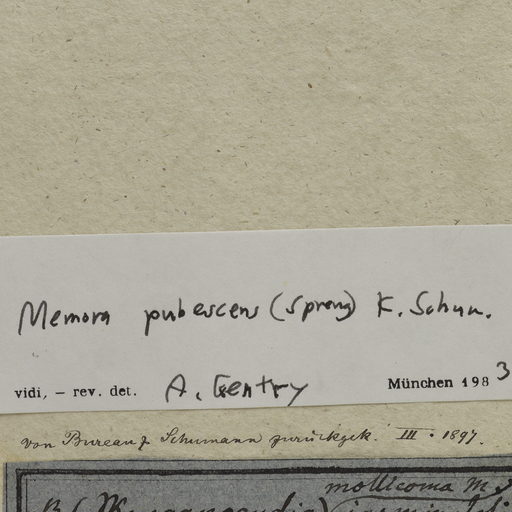 Memora pubescens (Spreng) K. Schum.
vidi, – rev. det. A. Gentry München 1983
von Bureau & Schumann zurückgek. III. 1897.
mollicoma M